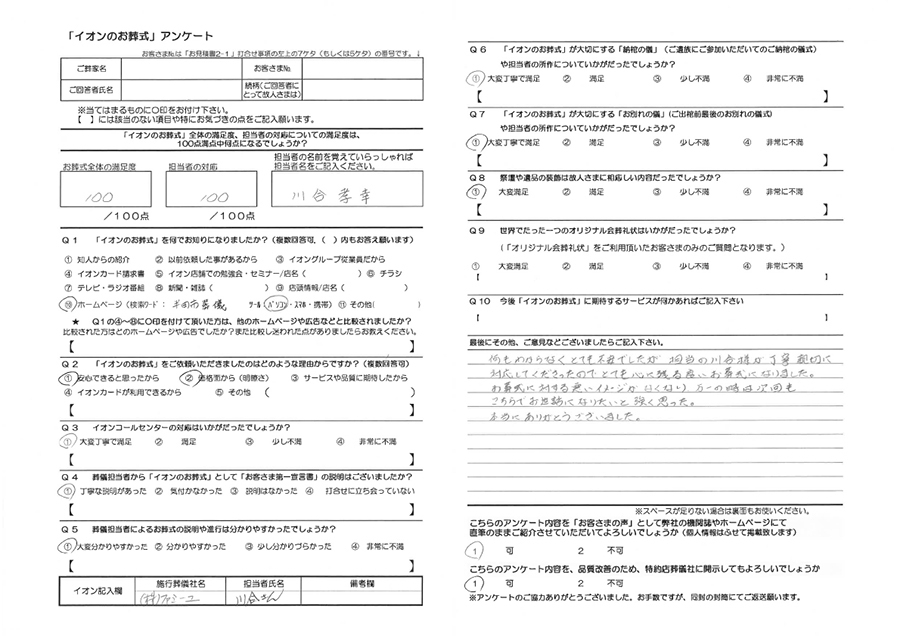 「イオンのお葬式」アンケート
お客さま№は「お見積書2-1」打合せ事項の左上の7ケタ(もしくは5ケタ)の番号です。↓
ご葬家名 お客さま№
ご回答者氏名 続柄(ご回答者にとって故人さまは)
※当てはまるものに○印をお付け下さい。
【 】には該当のない項目や特にお気づきの点をご記入願います。
「イオンのお葬式」全体の満足度、担当者の対応についての満足度は、
100点満点中何点になるでしょうか?
お葬式全体の満足度 担当者の対応 担当者の名前を覚えていらっしゃれば
担当者名をご記入ください。
100 100 川合 孝幸
/100点 /100点
Q1 「イオンのお葬式」を何でお知りになりましたか?(複数回答可、( )内もお答え願います)
① 知人からの紹介 ② 以前依頼した事があるから ③ イオングループ従業員だから
④ イオンカード請求書 ⑤ イオン店舗での勉強会・セミナー/店名( ) ⑥ チラシ
⑦ テレビ・ラジオ番組 ⑧ 新聞・雑誌( ) ⑨ 店頭情報/店名( )
⑩ ホームページ(検索ワード: 半田市葬儀 ツール パソコン・スマホ・携帯) ⑪ その他( )
★ Q1の④~⑧に○印を付けて頂いた方は、他のホームページや広告などと比較されましたか?
比較された方はどのホームページや広告でしたか?また比較し迷われた点がありましたらお教えください。
【 】
Q2 「イオンのお葬式」をご依頼いただきましたのはどのような理由からですか?(複数回答可)
① 安心できると思ったから ② 価格面から(明瞭さ) ③ サービスや品質に期待したから
④ イオンカードが利用できるから ⑤ その他 ( )
【 】
Q3 イオンコールセンターの対応はいかがだったでしょうか?
① 大変丁寧で満足 ② 満足 ③ 少し不満 ④ 非常に不満
【 】
Q4 葬儀担当者から「イオンのお葬式」として「お客さま第一宣言書」の説明はございましたか?
① 丁寧な説明があった ② 気付かなかった ③ 説明はなかった ④ 打合せに立ち会っていない
【 】
Q5 葬儀担当者によるお葬式の説明や進行は分かりやすかったでしょうか?
① 大変分かりやすかった ② 分かりやすかった ③ 少し分かりづらかった ④ 非常に不満
【 】
イオン記入欄 施行葬儀社名 担当者氏名 備考欄
(株)ファミーユ 川合さん
Q6 「イオンのお葬式」が大切にする「納棺の儀」(ご遺族にご参加いただいてのご納棺の儀式)
や担当者の所作についていかがだったでしょうか?
① 大変丁寧で満足 ② 満足 ③ 少し不満 ④ 非常に不満
【 】
Q7 「イオンのお葬式」が大切にする「お別れの儀」(ご出棺前最後のお別れの儀式)
や担当者の所作についていかがだったでしょうか?
① 大変丁寧で満足 ② 満足 ③ 少し不満 ④ 非常に不満
【 】
Q8 祭壇や遺品の装飾は故人さまに相応しい内容だったでしょうか?
① 大変満足 ② 満足 ③ 少し不満 ④ 非常に不満
【 】
Q9 世界でたった一つのオリジナル会葬礼状はいかがだったでしょうか?
(「オリジナル会葬礼状」をご利用頂いたお客さまのみのご質問となります。)
① 大変満足 ② 満足 ③ 少し不満 ④ 非常に不満
【 】
Q10 今後「イオンのお葬式」に期待するサービスが何かあればご記入下さい
【 】
最後にその他、ご意見などございましたらご記入下さい。
何もわからなくとても不安でしたが 担当の川合様が丁寧 親切に
対応してくださったのでとても心に残る良いお葬式になりました。
お葬式に対する悪いイメージがなくなり 万一の時は次回も
こちらでお世話になりたいと強く思った。
本当にありがとうございました。
※スペースが足りない場合は裏面もお使いください。
こちらのアンケート内容を「お客さまの声」として弊社の機関誌やホームページにて
直筆のままご紹介させていただいてよろしいでしょうか(個人情報はふせて掲載致します)
1 可 2 不可
こちらのアンケート内容を、品質改善のため、特約店葬儀社に開示してもよろしいでしょうか
1 可 2 不可
※アンケートのご協力ありがとうございました、お手数ですが、同封の封筒にてご返送願います。